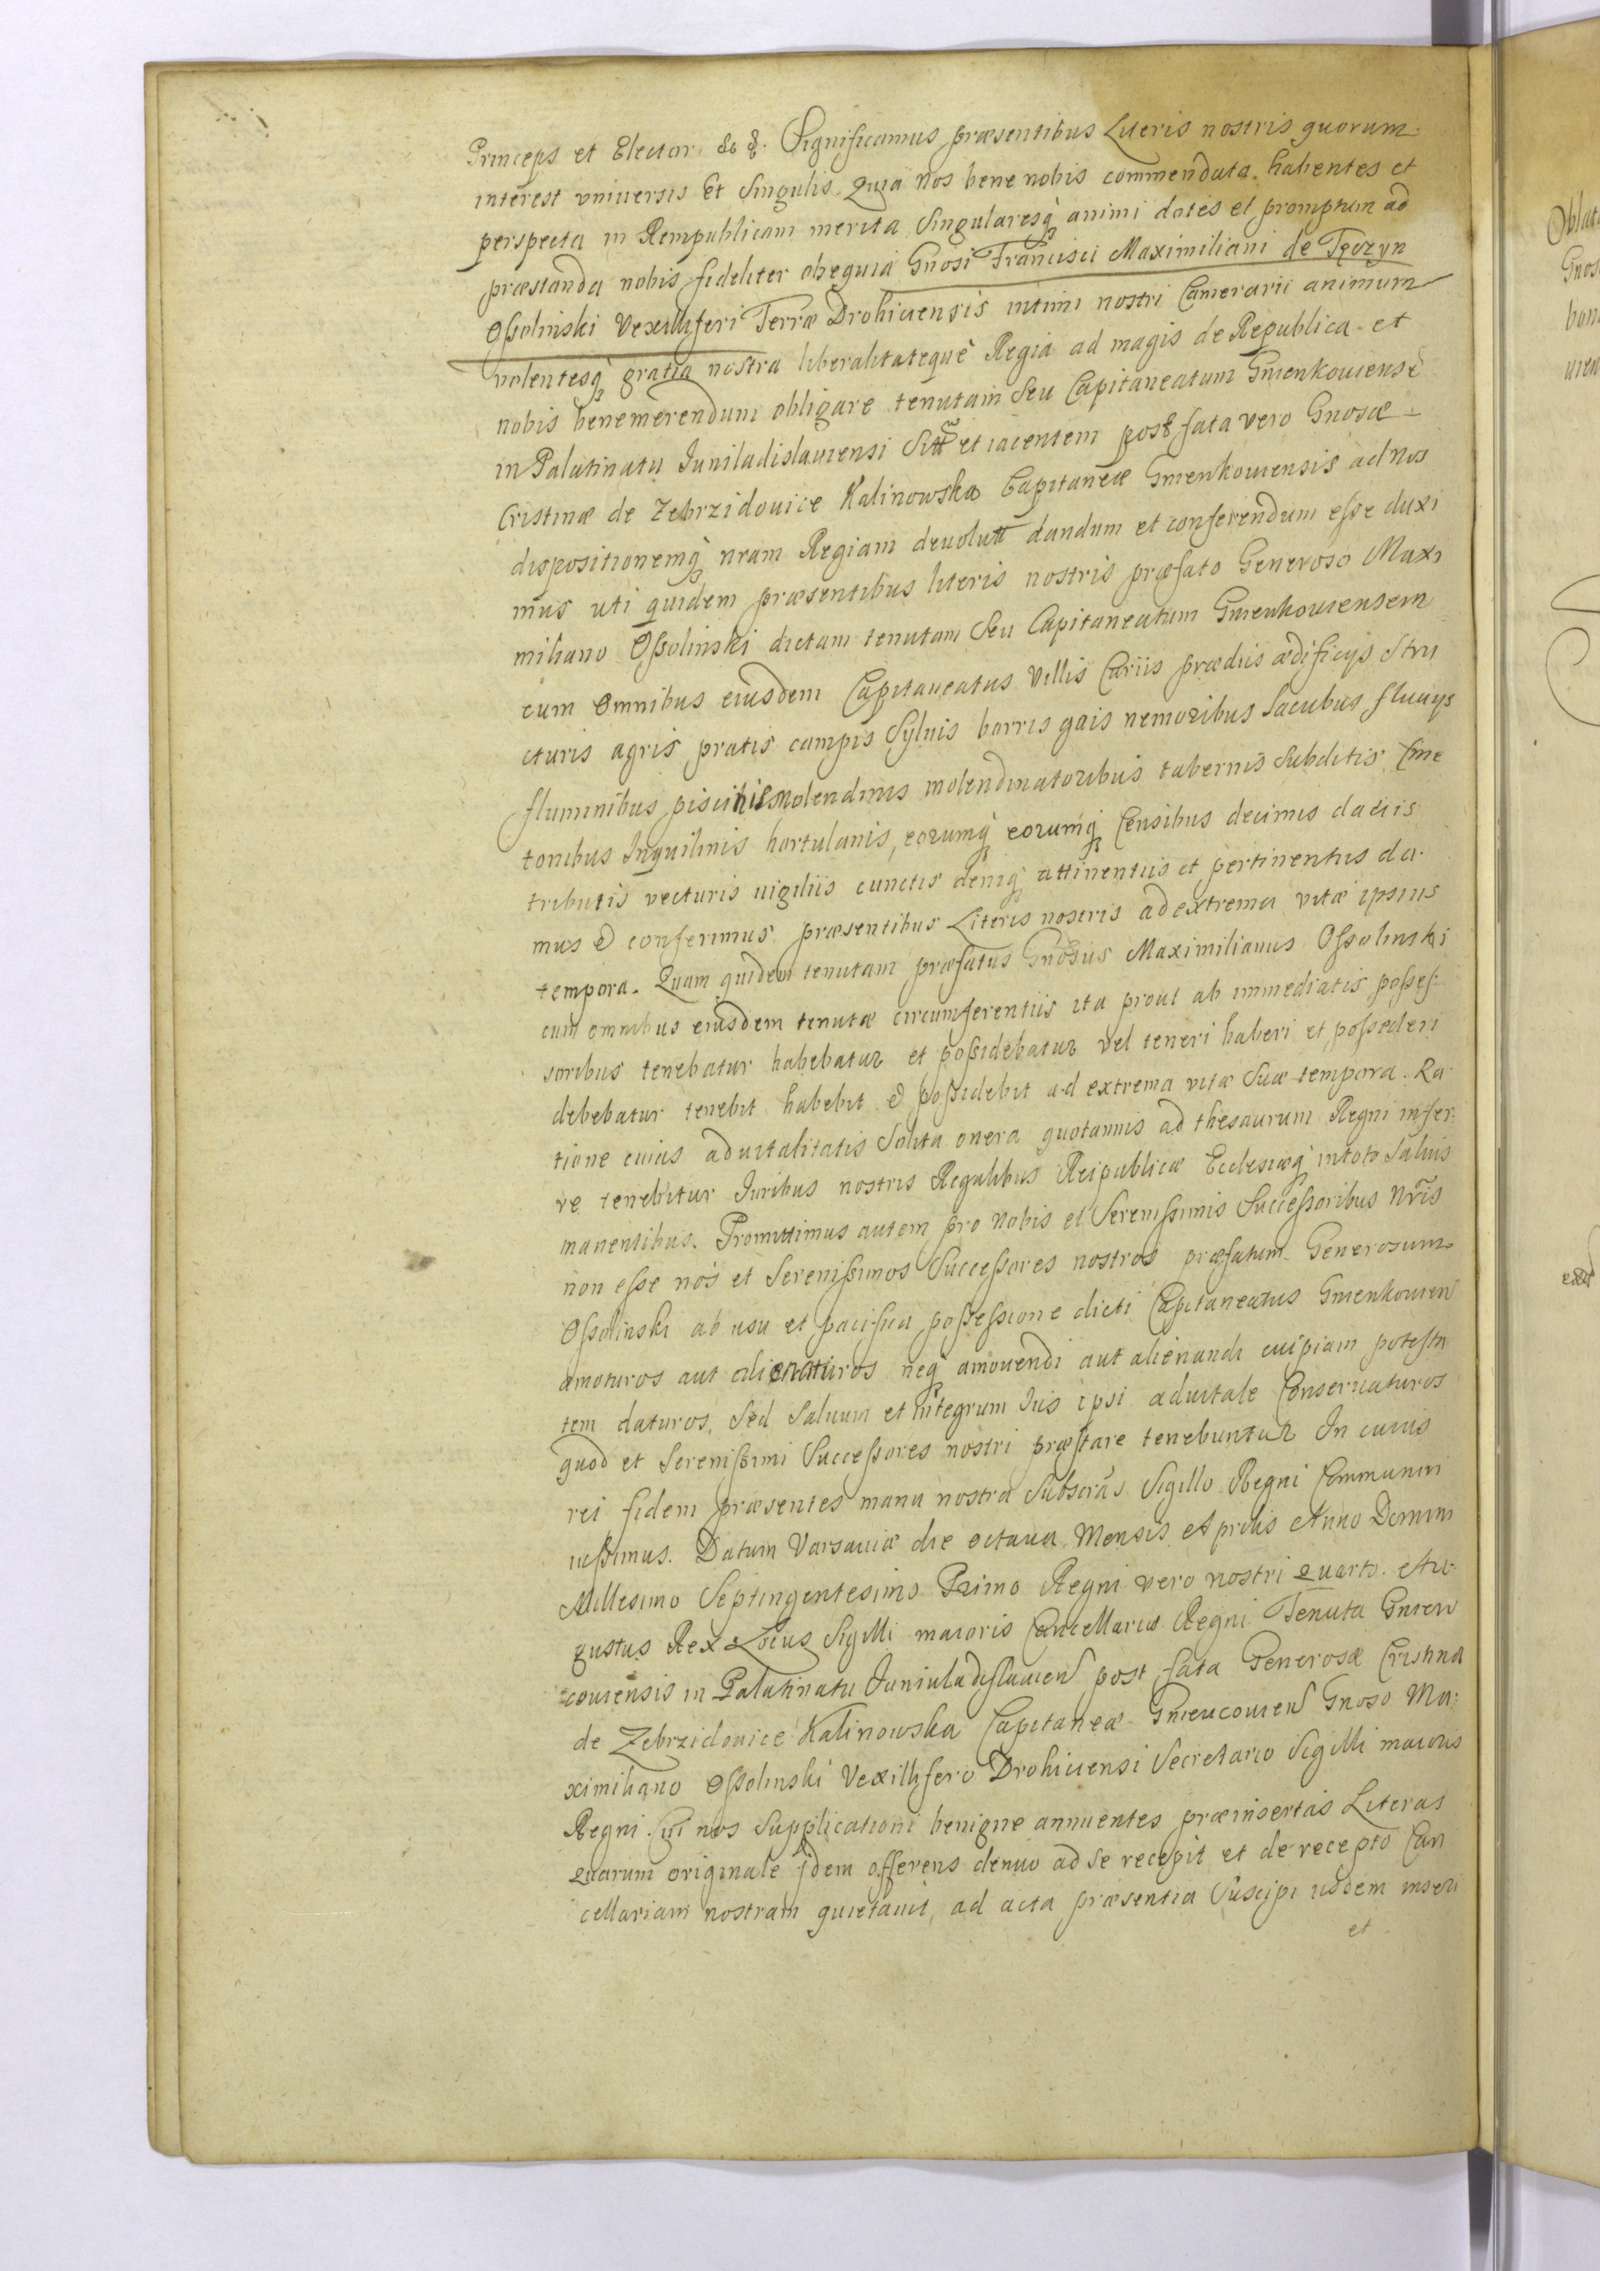 Princeps et Elector &c &. Significamus præsentibus Literis nostris quorum
interest vniuersis et Singulis. Quia Nos bene nobis commendata habentes et
perspecta in Rempublicam merita Singularesq́ animi dotes et promptum ad
præstanda nobis fideliter obsequia Gnosi Francisci Maximiliani de Tęczyn
Ossolinski Vexilliferi Terræ Drohiciensis intimi nostri Camerarii animum
volentesq́ gratia nostra liberalitatequè Regia ad magis de Republica et
nobis benemerendum obligare tenutam Seu Capitaneatum Gniewkouiense
in Palatinatu Juniladislauiensi Sitt̃ et iacentem post fata vero Gnosæ
Cristinæ de Zebrzidouice Kalinowska Capitaneæ Gniewkouiensis ad Nos
dispositionemq́ nram Regiam deuolutt dandum et conferendum esse duxi
mus uti quidem præsentibus literis nostris præfato Generoso Maxi
miliano Ossolinski dictam tenutam Seu Capitaneatum Gniewkouiensem
cum Omnibus eiusdem Capitaneatus Villis Curiis prædiis ædificijs Stru
cturis agris pratis campis Syluis borris gais nemoribus Lacubus fluuijs
fluminibus piscinis Molendinis molendinatoribus tabernis Subditis Cme
tonibus Inquilinis hortulanis, eorumq́ eorumq́ Censibus decimis daciis
tributis vecturis uigiliis cunctis deniq́ attinentiis et pertinentiis da
mus & conferimus præsentibus Literis nostris ad extrema vitæ ipsius
tempora. Quam quidem tenutam præfatus Gnosus Maximilianus Ossolinski
cum omnibus eiusdem tenutæ circumferentiis ita prout ab immediatis posses
soribus tenebatur habebatur et possidebatur vel teneri haberi et possederi
debebatur tenebit habebit & possidebit ad extrema vitæ Suæ tempora. Ra
tione cuius aduitalitatis Solita onera quotannis ad thesaurum Regni infer
re tenebitur Juribus nostris Regalibus Reipublicæ Ecclesiæq́ in toto Saluis
manentibus. Promittimus autem pro Nobis et Serenissimis Successoribus Nr̃is
non esse nos et Serenissimos Successores nostros præfatum Generosum
Ossolinski ab usu et pacifica possessione dicti Capitaneatus Gniewkouien
amoturos aut alienaturos neq́ amouendi aut alienandi cuipiam potesta
tem daturos, Sed Saluum et integrum Jus ipsi aduitale Conseruaturos
quod et Serenissimi Successores nostri præstare tenebuntur In cuius
rei fidem præsentes manu nostra Subscrãs Sigillo Regni Communiri
iussimus. Datum Varsauiæ die octaua Mensis Aprilis Anno Domini
Millesimo Septingentesimo Primo Regni vero nostri quarto. Au
gustus Rex Locus Sigilli maioris Cancellariæ Regni Tenuta Gniew
couiensis in Palatinatu Juniuladislauien post fata Generosæ Cristinæ
de Zebrzidouice Kalinowska Capitaneæ Gnieucouien Gnoso Ma
ximiliano Ossolinski Vexillifero Drohiciensi Secretario Sigilli maioris
Regni. Cui nos Supplicationi benigne annuentes præinsertas Literas
quarum originale jdem offerens denuo ad se recepit et de recepto Can
cellariam nostram quietauit, ad acta præsentia Suscipi iisdem inseri
et